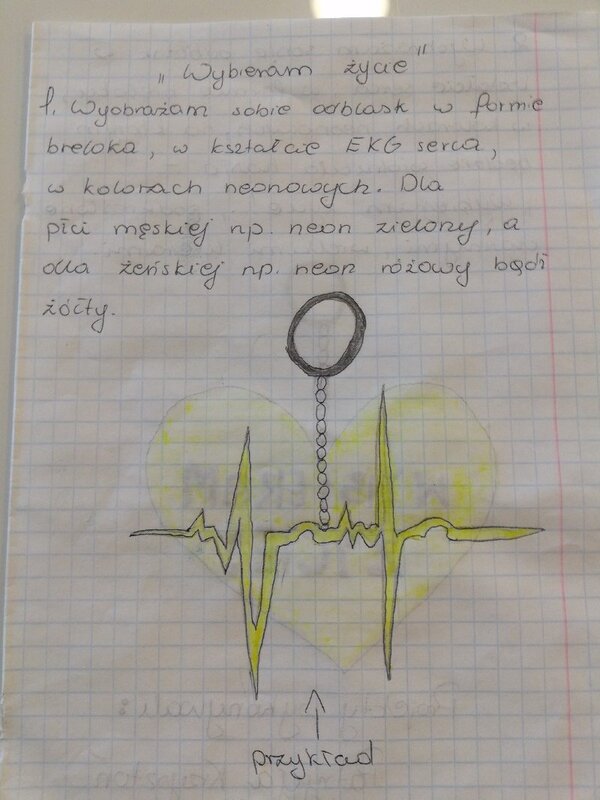 „Wybieram życie"
1. Wyobrażam sobie odblask w formie
breloka, w kształcie EKG serca,
w kolorach neonowych. Dla
płci męskiej np. neon zielony, a
dla żeńskiej np. neon różowy bądź
żółty.
przykład